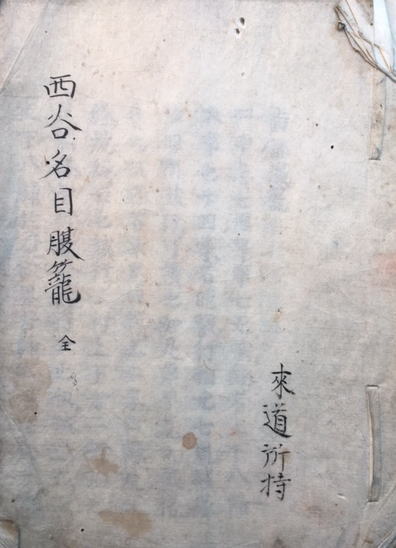 西谷名目腹籠 全
來道所持